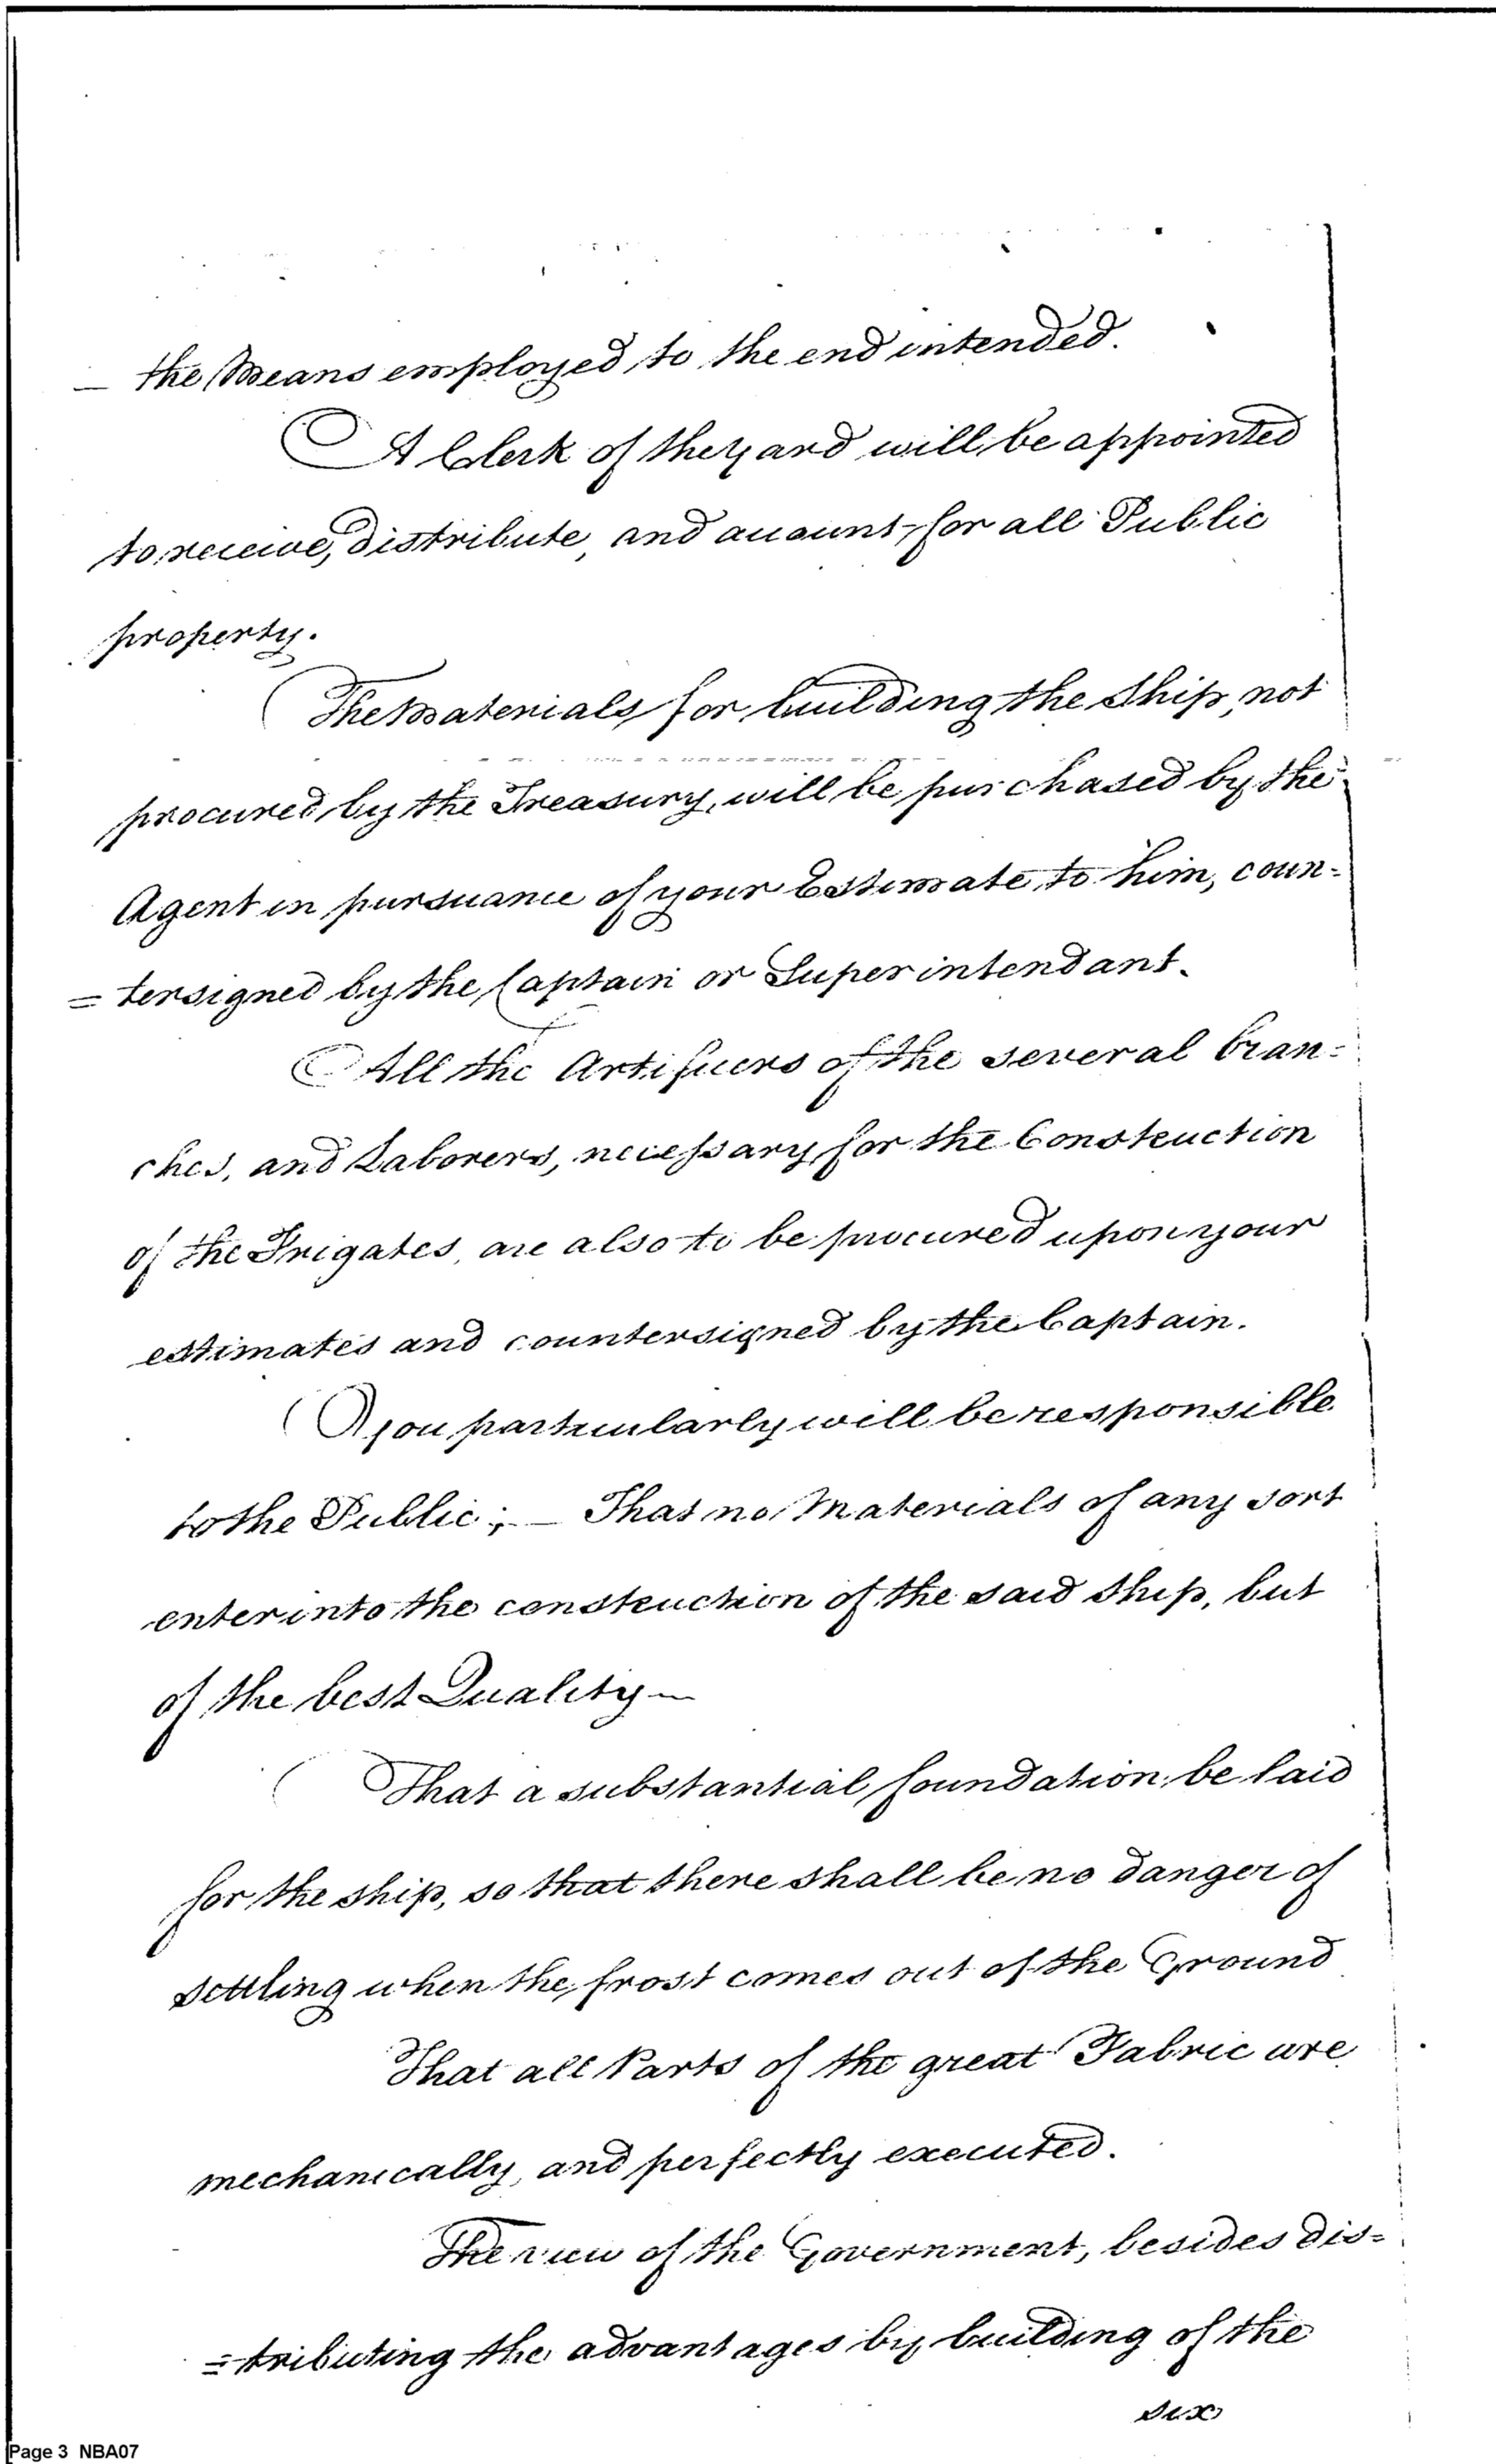 – the Means employed to the end intended.
A Clerk of the yard will be appointed
to receive, distribute, and account for all Public
property.
The Materials for building the Ship, not
procured by the Treasury, will be purchased by the
Agent in pursuance of your Estimate to him, coun=
=tersigned by the Captain or Superintendant.
All the Artificers of the several bran=
ches, and Laborers, necessary for the Construction
of the Frigates, are also to be procured upon your
estimates and countersigned by the Captain.
You particularly will be responsible
to the Public; – That no Materials of any sort
enter into the construction of the said Ship, but
of the best Quality –
That a substantial foundation be laid
for the ship, so that there shall be no danger of
settling when the frost comes out of the Ground
That all Parts of the great Fabric are
mechanically, and perfectly executed.
The view of the Government, besides dis=
=tributing the advantages by building of the
six
Page 3 NBA07